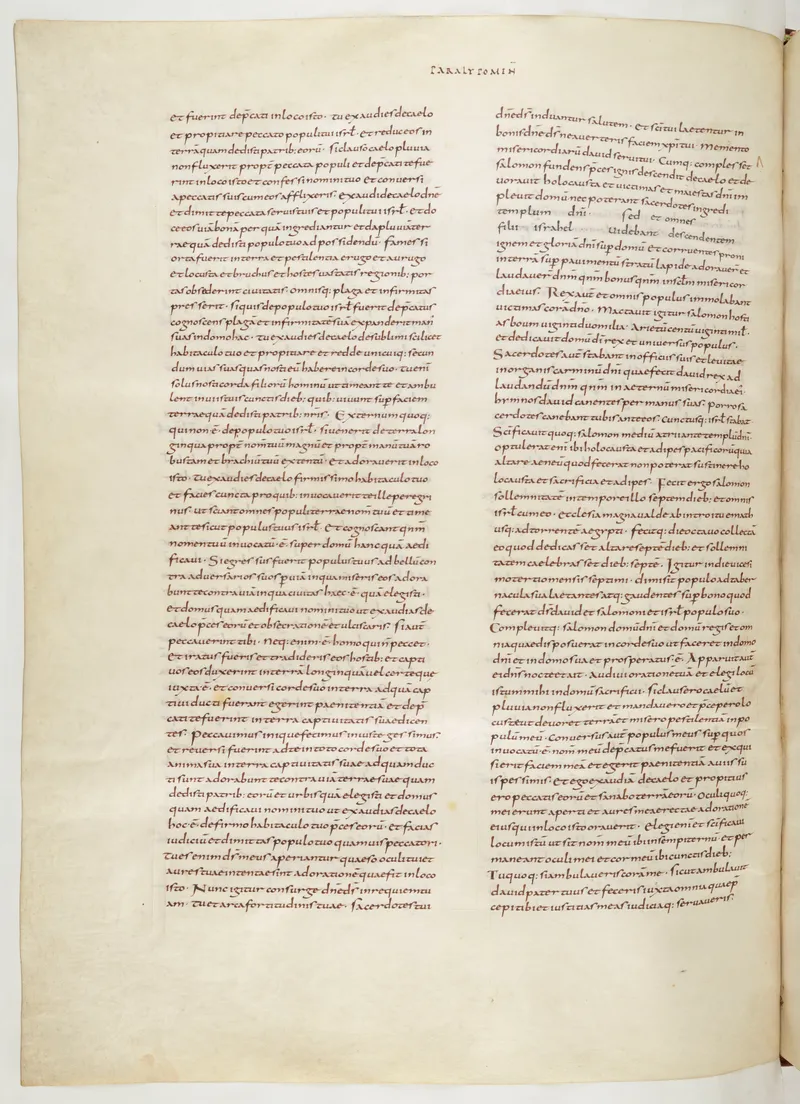 PARALYPOMIN̄
et fuerint dep̄cati in loco isto · tu exaudies de caelo
et propitiare peccato populi tui isrl̄ · et reduc eos in
terrā quam dedisti patrib; eorū · Si clauso caelo pluvia
non fluxerit propt̄ peccata populi et dep̄cati te fue
rint in loco isto et confessi nomini tuo et conversi
a peccatis suis cum eos afflixeris · exaudi de caelo dn̄e
et dimitte peccata servis tuis et populi tui isrl̄ · et do
ce eos viā bonā per quā ingrediantur et da pluviā ter
rae quā dedisti populo tuo ad possidendū · fames si
orta fuerit in terra et pestilentia erugo et aurugo
et locusta et bruchus et hostes vastatis regionib; por
tas obsederint civitatis · omnisq; plaga et infirmitas
presserit · Si quis de populo tuo isrl̄ fuerit dep̄catus
cognoscens plagā et infirmitatē suā expanderit man
suas in domo hac · tu exaudies de caelo de sublimi scilicet
habitaculo tuo et propitiare et redde unicuiq; secun
dum vias suas quas nosti eū habere in corde suo · Tu enī
solus nosti corda filiorū hominū ut timeant te et ambu
lent in viis tuis cunctis dieb; quib; vivunt sup faciem
terrae quā dedisti patrib; nr̄is · Externum quoq;
qui non ē · de populo tuo isrl̄ · si venerit de terra lon
ginqua propt̄ nom̄ tuū magnū et propt̄ manū tuā ro
bustam et brachiū tuū extentū · et adoraverit in loco
isto · Tu exaudies de caelo firmissimo habitaculo tuo
et facies cuncta pro quib; invocaverit te ille peregri
nus · ut sciant omnes populi terrae nom̄ tuū et time
ant te sicut populus tuus isrl̄ · Et cognoscant qn̄m
nomen tuū invocatū · ē · super domū hanc quā aedi
ficavi · Si egressus fuerit populus tuus ad bellū con
tra adversarios suos p viā in qua miseris eos adora
bunt te contra viā in qua civitas haec · ē · quā elegisti ·
et domus quam aedificavi nomini tuo ut exaudias de
caelo p̄ces eorū et obsecrationē et ulciscaris · Si aut̄
peccaverint tibi · Neq; enim · ē · homo qui n̄ peccet ·
et iratus fueris et tradideris eos hostib; et capti
vos eos duxerint in terrā longinquā vel certe quae
iuxta ē · et conversi corde suo in terra ad quā cap
tivi ducti fuerant egerint paenitentiā et dep̄
cati te fuerint in terra captivitatis suae dicen
tes · Peccavimus inique fecimus iniuste gessimus ·
et reversi fuerint ad te in toto corde suo et tota
anima sua in terra captivitatis suae ad quam duc
ti sunt adorabunt te contra viā terrae suae quam
dedisti patrib; eorū et urbis quā elegisti et domus
quam aedificavi nomini tuo ut exaudias de caelo
hoc · ē · de firmo habitaculo tuo p̄ces eorū · et facias
iudiciū et dimittas populo tuo quamvis peccatori ·
Tu es enim ds̄ meus aperiantur quaeso oculi tui et
aures tuae intentae sint ad orationē quae fit in loco
isto · Nunc igitur consurge dn̄e ds̄ in requiem tu
am · tu et arca fortitudinis tuae · sacerdotes tui
dn̄e ds̄ induantur salutem · et sc̄i tui laetentur in
bonis dn̄e ds̄ ne averteris faciem xp̄i tui memento
misericordiarū david servi tui · Cumq; complesset
salomon fundens p̄ces ignis descendit de caelo et de
voravit holocausta et victimas et maiestas dn̄i im
plevit domū nec poterant sacerdotes ingredi
templum dn̄i · sed et omnes
filii israhel videbant descendentem
ignem et gloriā dn̄i sup domū et corruentes proni
in terrā sup pavimentū stratū lapide adoraver̄ et
laudaver̄ dn̄m qn̄m bonus qn̄m in sc̄lm misericor
dia eius · Rex aut̄ et omnis populus immolabant
victimas corā dn̄o · Mactavit igitur salomon hosti
as boum viginti duo milia · Arietū centū viginti mil̄ ·
et dedicavit domū di rex et universus populus ·
Sacerdotes aut̄ stabant in officiis suis et levitae
in organis carminū dn̄i quae fecit david rex ad
laudandū dn̄m qn̄m in aeternū misericordia ei ·
hymnos david canentes per manus suas · porro sa
cerdotes canebant tubis ante eos · Cunctusq; isrl̄ stabat
Sc̄ificavit quoq; salomon mediū atrii ante templū dn̄i ·
optulerat enī ibi holocausta et adipes pacificorū quia
altare aeneū quod fecerat non poterat sustinere ho
locausta et sacrificia et adipes · Fecit ergo salomon
sollemnitatē in tempore illo septem dieb; et omnis
isrl̄ cum eo · ecclesia magna valde ab introitu emath
usq; ad torrentē aegypti · fecitq; die octavo collectā
eo quod dedicasset altare septē dieb; et sollemni
tatem celebrasset dieb; septē · Igitur in die vicesi
mo tertio mensis septimi · dimisit populos ad taber
nacula sua laetantes atq; gaudentes sup bono quod
fecerat ds̄ david et salomoni et isrl̄ populo suo ·
Complevitq; salomon domū dn̄i et domū regis et om
nia quae disposuerat in corde suo ut faceret in domo
dn̄i et in domo sua et prosperatus · ē · Apparuit aut̄
ei dn̄s nocte et ait · Audivi orationē tuā et elegi locū
istum mihi in domū sacrificii · Si clausero caelū et
pluvia non fluxerit et mandavero et p̄cepero lo
custae ut devoret terrā et misero pestilentiā in po
pulū meū · Conversus aut̄ populus meus sup quos
invocatū · ē · nom̄ meū dep̄catus me fuerit et exqui
sierit faciem meā et egerit paenitentiā a viis su
is pessimis · et ego exaudiā de caelo et propitius
ero peccatis eorū et sanabo terrā eorū · Oculi quoq;
mei erunt aperti et aures meae erectae ad orationē
eius qui in loco isto oraverit · elegi enī et sc̄ificavi
locum istū ut sit nom̄ meū ibi in sempiternū · et per
maneant oculi mei et cor meū ibi cunctis dieb;
Tu quoq; si ambulaveris corā me · sicut ambulavit
david pater tuus et feceris iuxta omnia quae p̄
cepi tibi et iustitias meas iudiciaq; servaveris ·